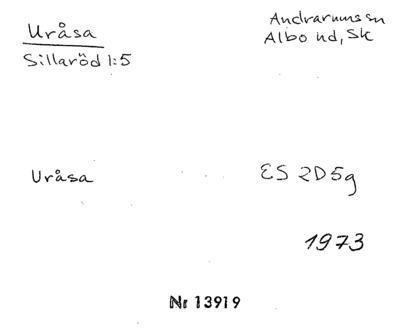 Uråsa
Sillaröd 1:5
Andrarums sn
Albo hd, Sk
Uråsa
ES 2D5g
1973
Nr 13919